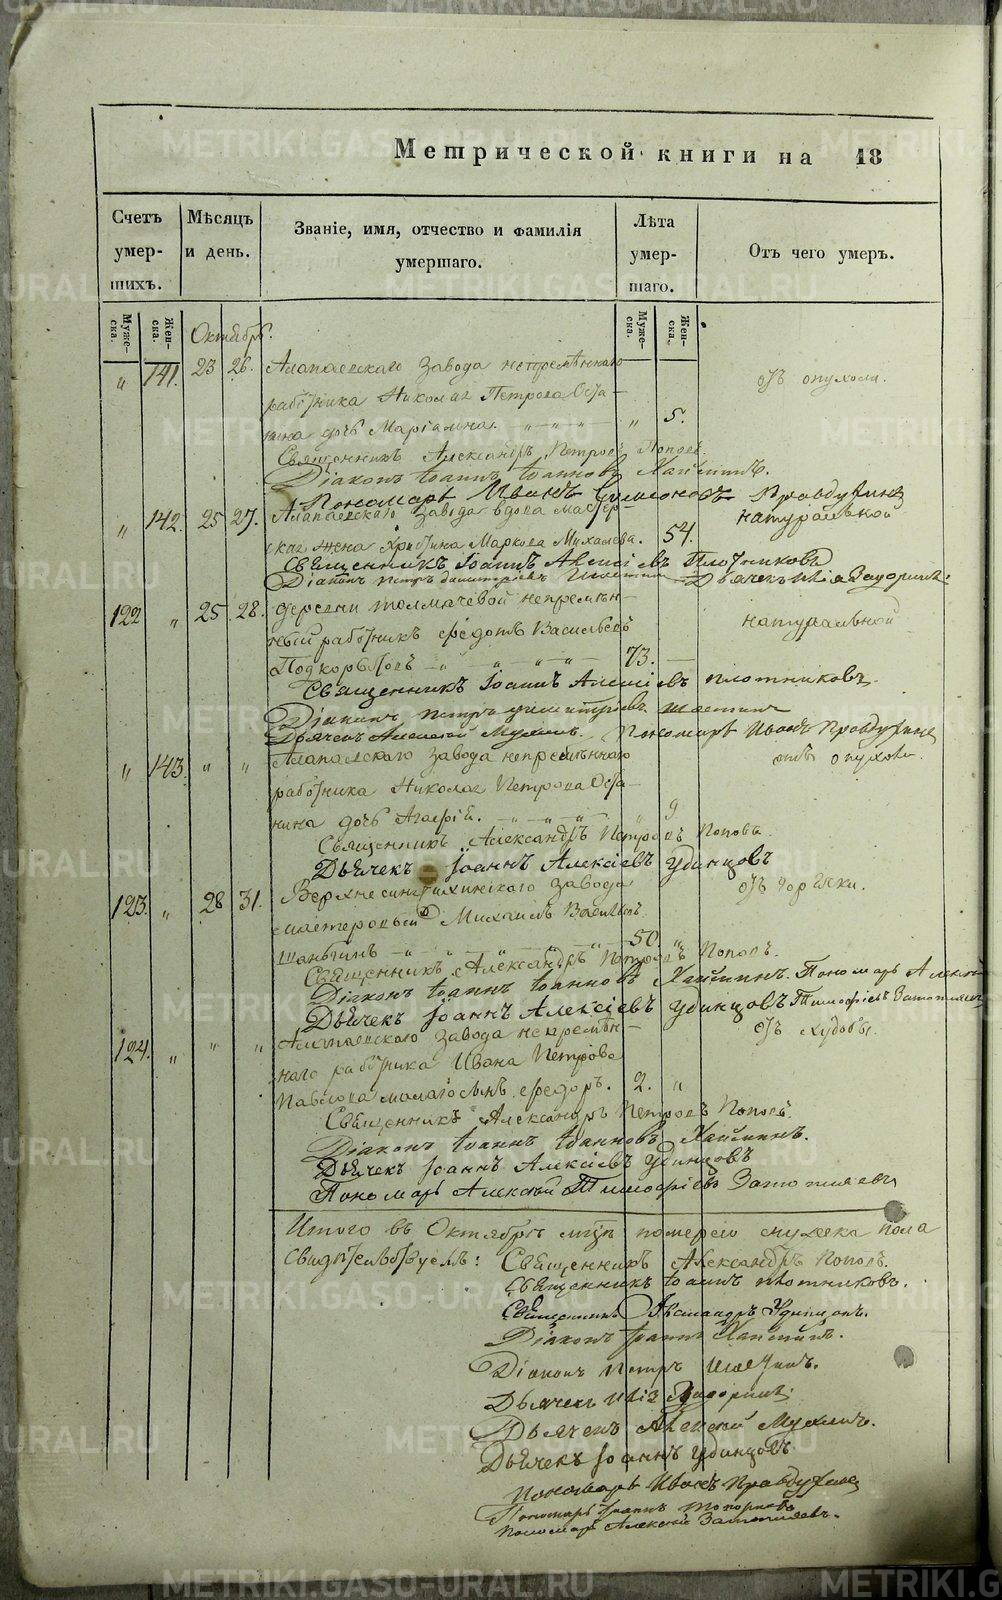 Метрической книги на 18
Счетъ умершихъ.
Мѣсяцъ и день.
Званіе, имя, отчество и фамилія умершаго.
Лѣта умершаго.
Отъ чего умеръ.
Мужеска.
Женска.
Мужеска.
Женска.
Октябрь.
„ 141. 23 26. Алапаевскаго завода непремѣннаго
работника Николая Петрова Оста-
нина дочь Маріамна. „ 5. отъ опухоли.
Священникъ Александръ Петровъ Поповъ.
Діаконъ Іоаннъ Іоанновъ
Пономарь Иванъ Симеоновъ Правдухинъ
„ 142. 25 27. Алапаевскаго завода вдова мастер-
ская жена Христина Маркова Михалева. 54. натуральной
Священникъ Іоаннъ Алексіевъ Плотниковъ
Діаконъ Петръ Димитріевъ Дьячекъ Илія Задоринъ.
122 „ 25 28. деревни Толмачевой непремѣн-
ный работникъ Федотъ Васильевъ натуральной
Подкорытовъ 73.
Священникъ Іоаннъ Алексіевъ Плотниковъ.
Діаконъ Петръ Димитріевъ
Дьячекъ Алексій Пономарь Иванъ Правдухинъ
„ 143. „ „ Алапаевскаго завода непремѣннаго отъ опухоли.
работника Николая Петрова Оста-
нина дочь 9
Священникъ Александръ Петровъ Поповъ.
Дьячекъ Іоаннъ Алексіевъ Удинцовъ
123. „ 28 31. Верхнесинячихинскаго завода отъ горячки.
мастеровый Михаилъ Васильевъ
Шаньгинъ 50. „
Священникъ Александръ Петровъ Поповъ.
Діаконъ Іоаннъ Іоанновъ Пономарь Алексій
Дьячекъ Іоаннъ Алексіевъ Удинцовъ Тимофіевъ Затопляевъ
124. „ „ „ Алапаевскаго завода непремѣн- отъ худобы.
наго работника Ивана Петрова
Павлова малаго сынъ Федоръ. 2. „
Священникъ Александръ Петровъ Поповъ.
Діаконъ Іоаннъ Іоанновъ
Дьячекъ Іоаннъ Алексіевъ Удинцовъ
Пономарь Алексій Тимофіевъ Затопляевъ
Итого въ Октябрѣ померло мужеска пола
Священникъ Александръ Поповъ.
Священникъ Іоаннъ Плотниковъ.
Священникъ Александръ Удинцовъ.
Діаконъ Іоаннъ
Діаконъ Петръ
Дьячекъ Илія Задоринъ.
Дьячекъ Алексій
Дьячекъ Іоаннъ Удинцовъ
Пономарь Иванъ Правдухинъ
Пономарь Іоаннъ Топорковъ
Пономарь Алексій Затопляевъ.
METRIKI.GASO-URAL.RU